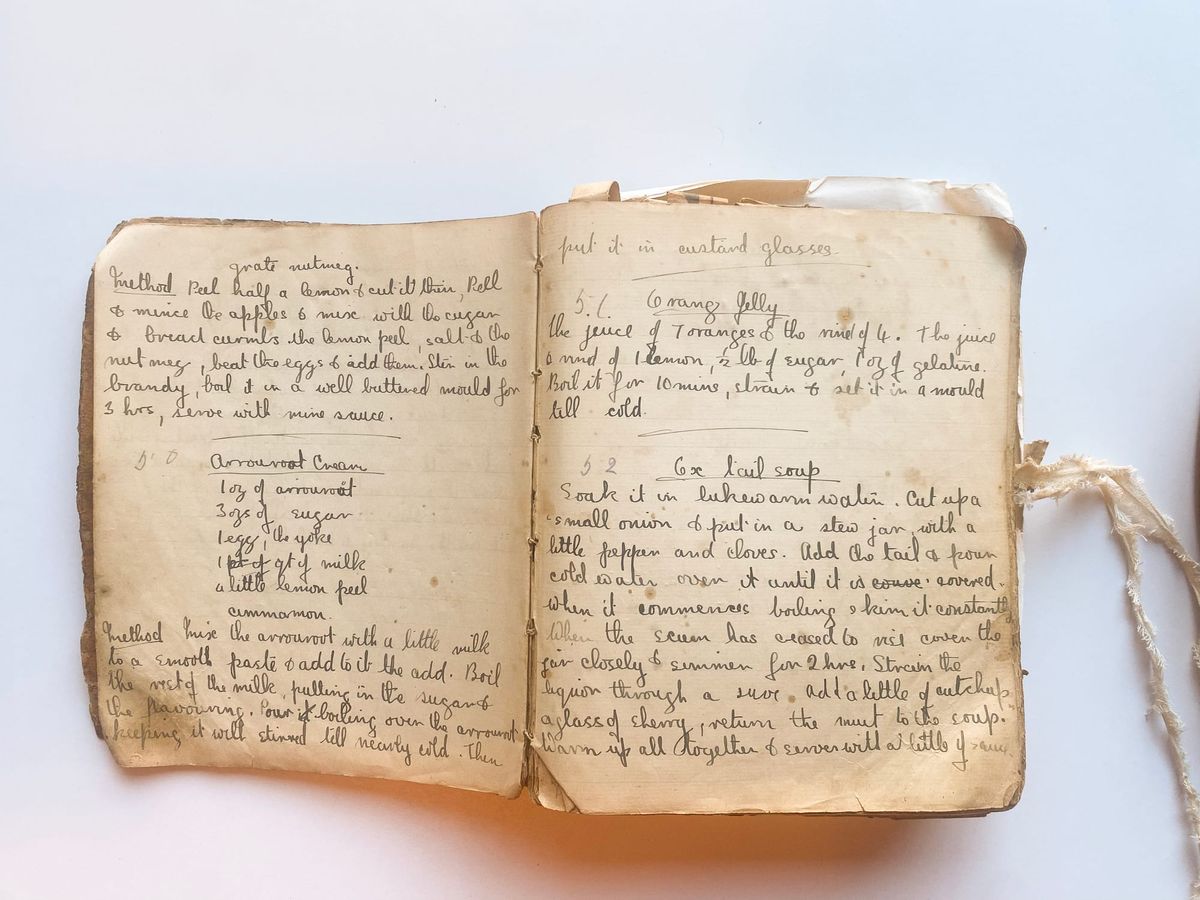 grate nutmeg.
Method Peel half a lemon & cut it thin, Pell
& mince the apples & mix with the sugar
& bread curmbs the lemon peel, salt & the
nutmeg, beat the eggs & add them. Stir in the
brandy, boil it in a well buttered mould for
3 hrs, serve with wine sauce.
50 Arrouroot Cream
1 oz of arrouroot
3 ozs of sugar
1 egg, the yoke
1 pt of qt of milk
a little lemon peel
cinnamon.
Method Mix the arrouroot with a little milk
to a smooth paste & add to it the add. Boil
the rest of the milk, putting in the sugar &
the flavouring. Pour it boiling over the arrouroot
keeping it will stirred till nearly cold. Then
put it in custard glasses
51 Orang Jelly
the jeuice of 7 oranges & the rind of 4. The juice
& rind of 1 lemon, ½ lb of sugar, 1 oz of gelatine.
Boil it for 10 mins, strain & set it in a mould
till cold.
52 Ox tail soup
Soak it in lukewarm water. Cut up a
small onion & put in a stew jar, with a
little pepper and cloves. Add the tail & pour
cold water over it until it is couve covered.
When it commences boiling skim it constantly
When the scum has ceased to rise cover the
jar closely & simmer for 2 hrs. Strain the
liquor through a sieve add a little of cutchup
a glass of sherry, return the meat to the soup.
Warm up all together & serve with a little of